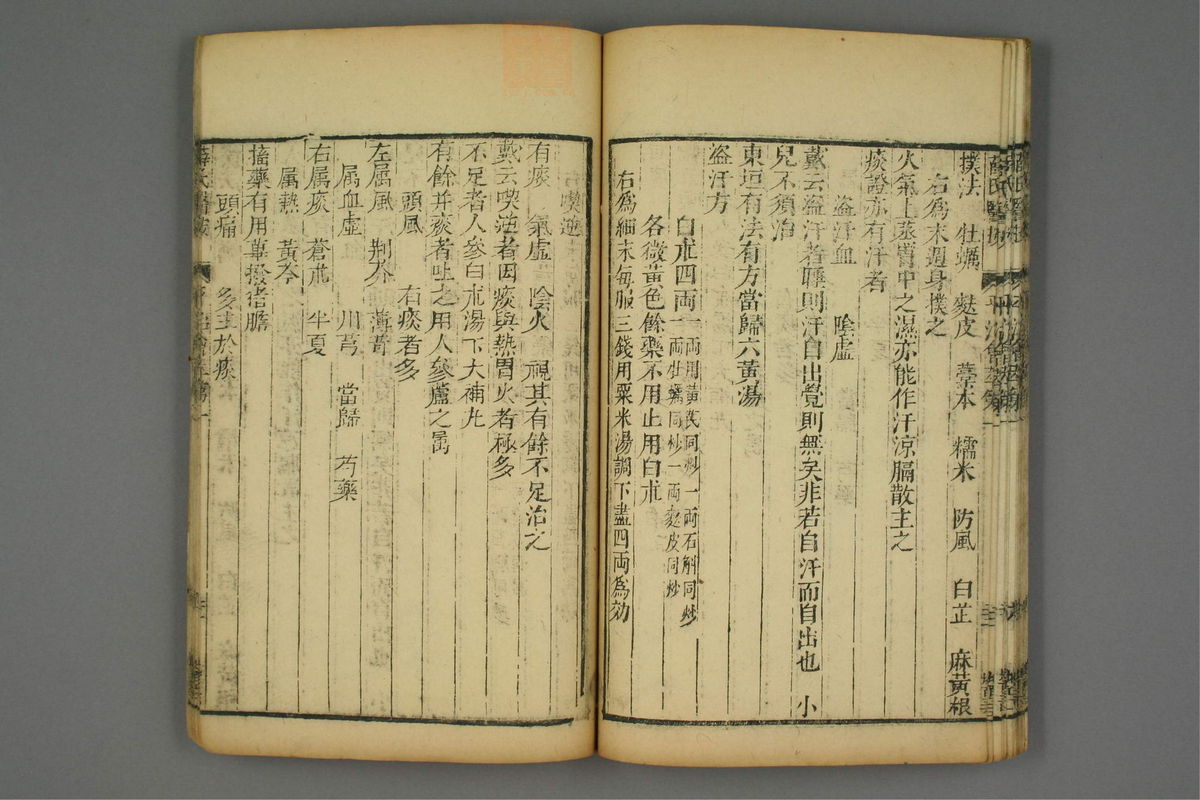 撲法 牡蠣 麩皮 藁本 糯米 防風 白芷 麻黃根
右為末週身撲之
火氣上蒸胃中之濕亦能作汗涼膈散主之
痰證亦有汗者
盜汗血 陰虛
戴云盜汗者睡則汗自出覺則無矣非若自汗而自出也 小
兒不須治
東垣有法有方當歸六黃湯
盜汗方
白朮四両一両用黃芪同炒一両石斛同炒
一両牡蠣同炒一両麩皮同炒
各微黃色餘藥不用止用白朮
右為細末每服三錢用粟米湯調下盡四両為効
有痰 氣虛 陰火 視其有餘不足治之
戴云喫逆者因痰與熱胃火者極多
不足者人參白朮湯下大補丸
有餘并痰者吐之用人參蘆之屬
頭風 右痰者多
左屬風 荆芥 薄荷
屬血虛 川芎 當歸 芍藥
右屬痰 蒼朮 半夏
屬熱 黃芩
搐藥有用蓽撥猪膽
頭痛 多主於痰
薛氏醫按
平治會萃卷一